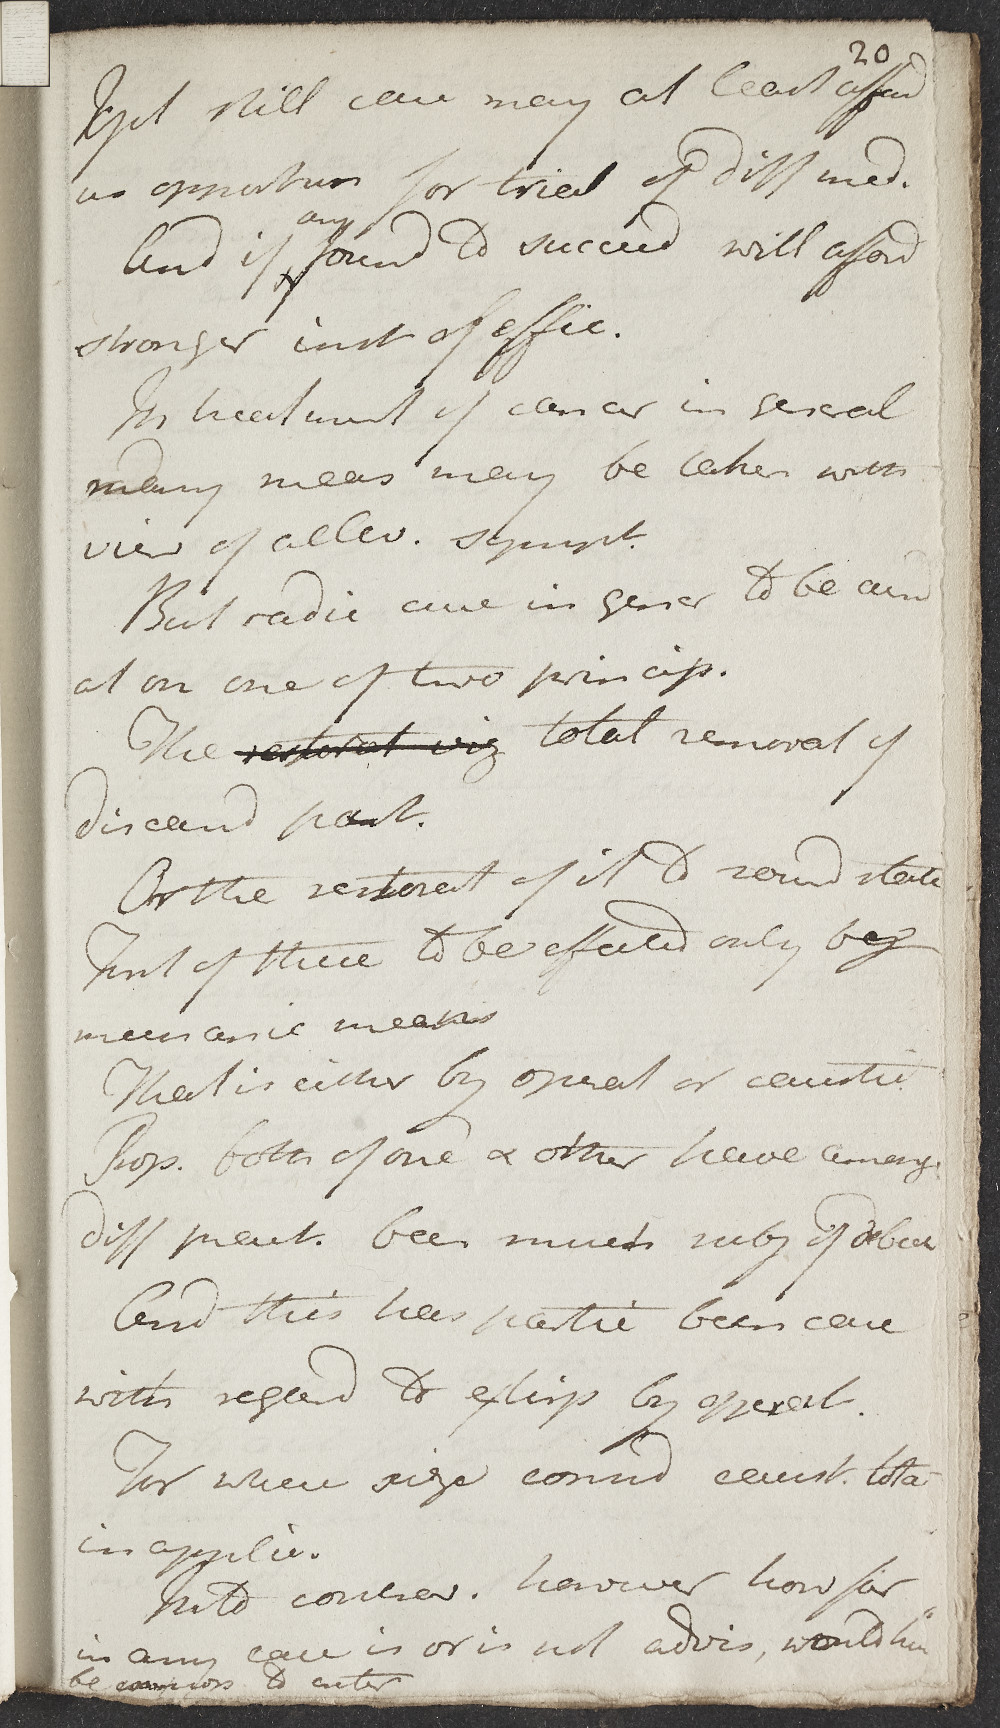 20
Yet still case may at least afford
us opportun for trial of diff med.
And if any found to succeed will afford
stronger inst of effic.
In treatment of cancer in general
many meas may be taken with
view of allev. sympt.
But radic cure in gener to be aim
at on one of two princip.
The restorat viz total removal of
diseasd part.
Or the restorat of it to sound state
First of these to be effected only by
mechanic means
That is either by operat or caustic
Prop. both of one & other have among
diff pract. been much subj of debate
And this has partic been case
with regard to extirp by operat.
For where size considd caust. tota
inapplic.
Into controv. however how far
in any case is or is not advis, would hin
be to enter